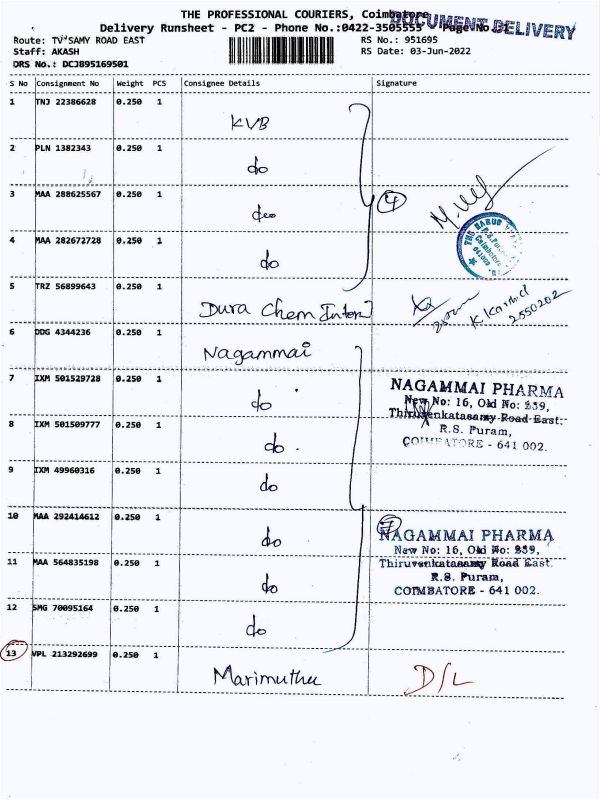 THE PROFESSIONAL COURIERS, Coimbatore
DOCUMENT DELIVERY
Delivery Runsheet - PC2 - Phone No.:0422-3505555 Page No.:1
Route: TV SAMY ROAD EAST RS No.: 951695
Staff: AKASH RS Date: 03-Jun-2022
DRS No.: DCJ895169501
S No Consignment No Weight PCS Consignee Details Signature
1 TNJ 22386628 0.250 1
KVB
2 PLN 1382343 0.250 1
do
3 MAA 288625567 0.250 1
do
4
4 MAA 282672728 0.250 1
do
5 TRZ 56899643 0.250 1
Dura Chem Intern
2550202
6 DDG 4344236 0.250 1
Nagammai
7 IXM 501529728 0.250 1
do
NAGAMMAI PHARMA
New No: 16, Old No: 239,
Thiruvenkatasamy Road East.
R.S. Puram,
COIMBATORE - 641 002.
8 IXM 501509777 0.250 1
do
9 IXM 49960316 0.250 1
do
10 MAA 292414612 0.250 1
do
7
NAGAMMAI PHARMA
New No: 16, Old No: 239,
Thiruvenkatasamy Road East.
R.S. Puram,
COIMBATORE - 641 002.
11 MAA 564835198 0.250 1
do
12 SMG 70095164 0.250 1
do
13 VPL 213292699 0.250 1
Marimuthu
D/L